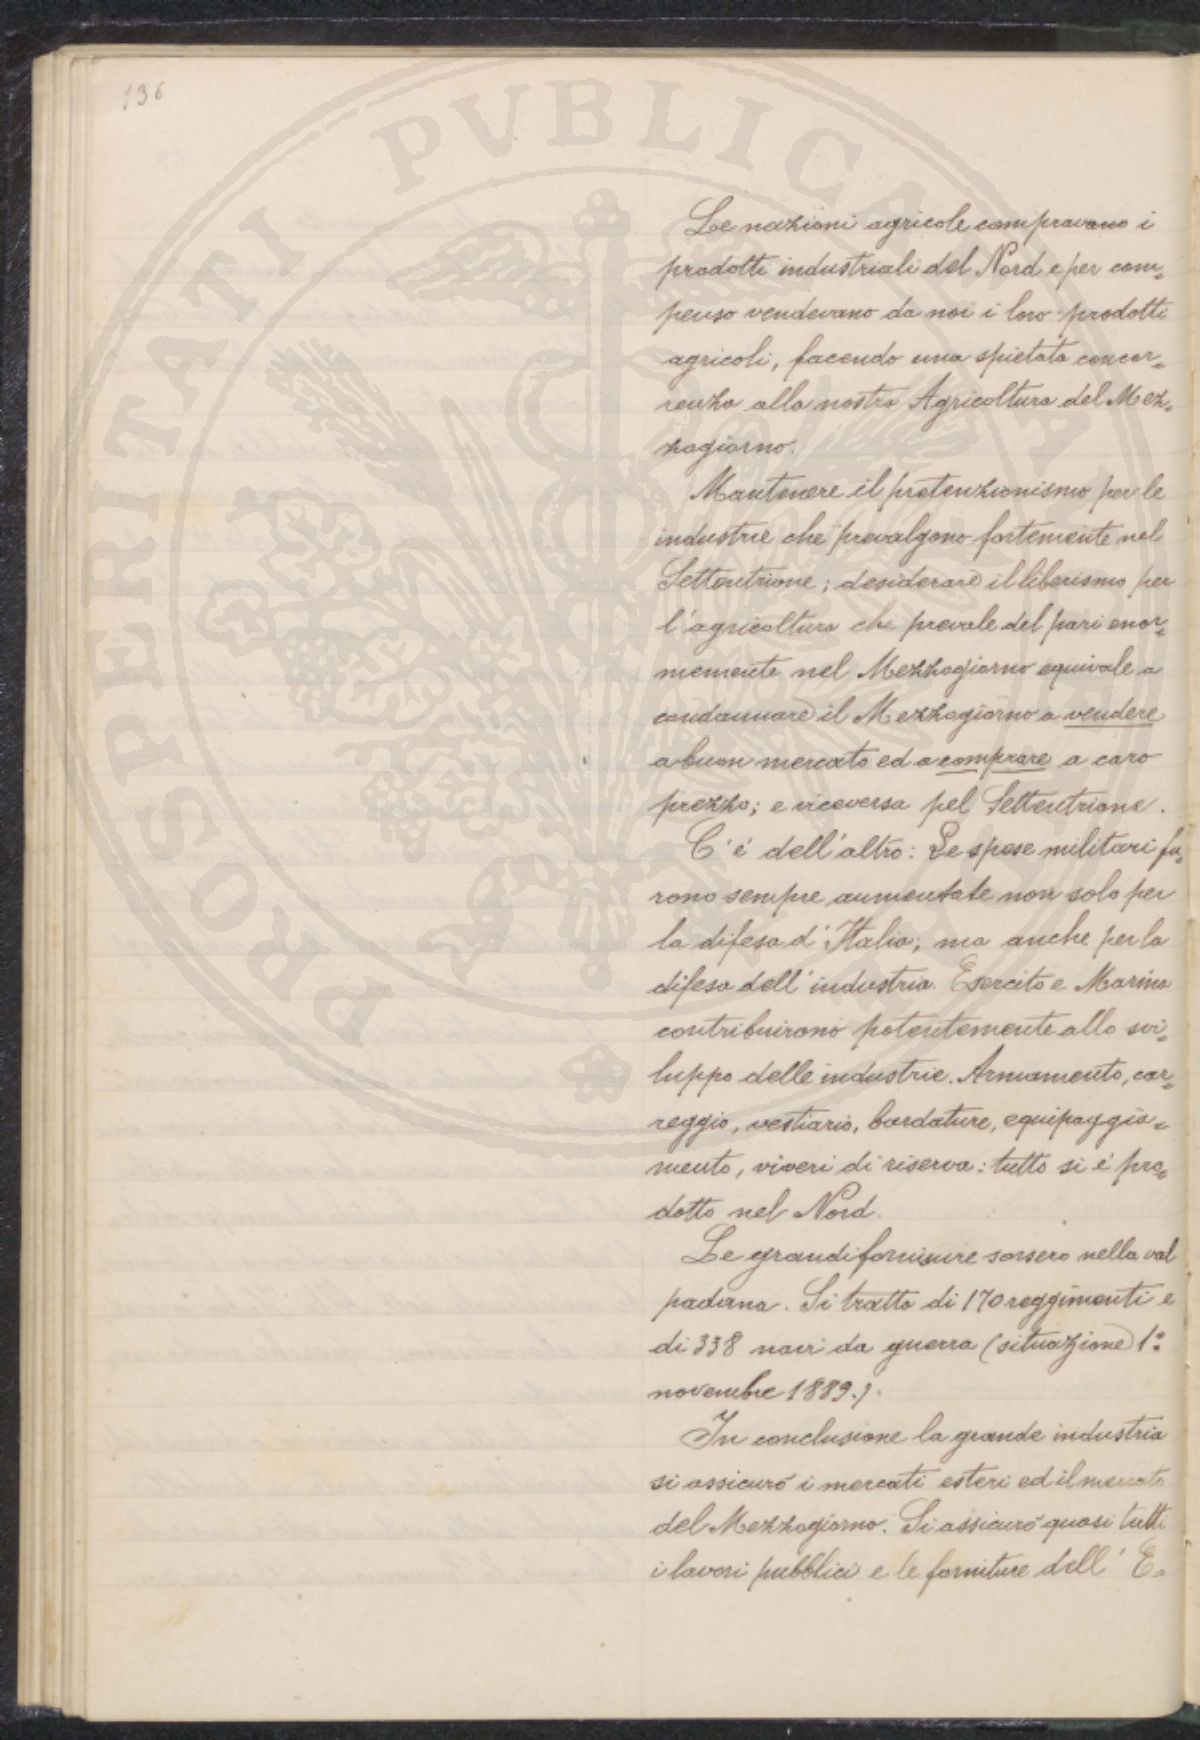 136
PROSPERITATI PUBLICAE
Le nazioni agricole compravano i
prodotti industriali del Nord e per com=
penso vendevano da noi i loro prodotti
agricoli, facendo una spietata concor=
renza alla nostra Agricoltura del Mez=
zogiorno.
Mantenere il protenzionismo per le
industrie che prevalgono fortemente nel
Settentrione; desiderare il liberismo per
l'agricoltura che prevale del pari enor=
memente nel Mezzogiorno equivale a
condannare il Mezzogiorno a vendere
a buon mercato ed a comprare a caro
prezzo; e viceversa pel Settentrione.
C'é dell'altro: Le spese militari fu=
rono sempre aumentate non solo per
la difesa d'Italia; ma anche per la
difesa dell'industria. Esercito e Marina
contribuirono potentemente allo svi=
luppo delle industrie. Armamento, car=
reggio, vestiario, bardature, equipaggia=
mento, viveri di riserva: tutto si é pro=
dotto nel Nord.
Le grandi forniture sorsero nella val
padana. Si tratta di 170 reggimenti e
di 338 navi da guerra (situazione 1:
novembre 1889.).
In conclusione la grande industria
si assicuró i mercati esteri ed il mercato
del Mezzogiorno. Si assicuró quasi tutti
i lavori pubblici e le forniture dell' E=